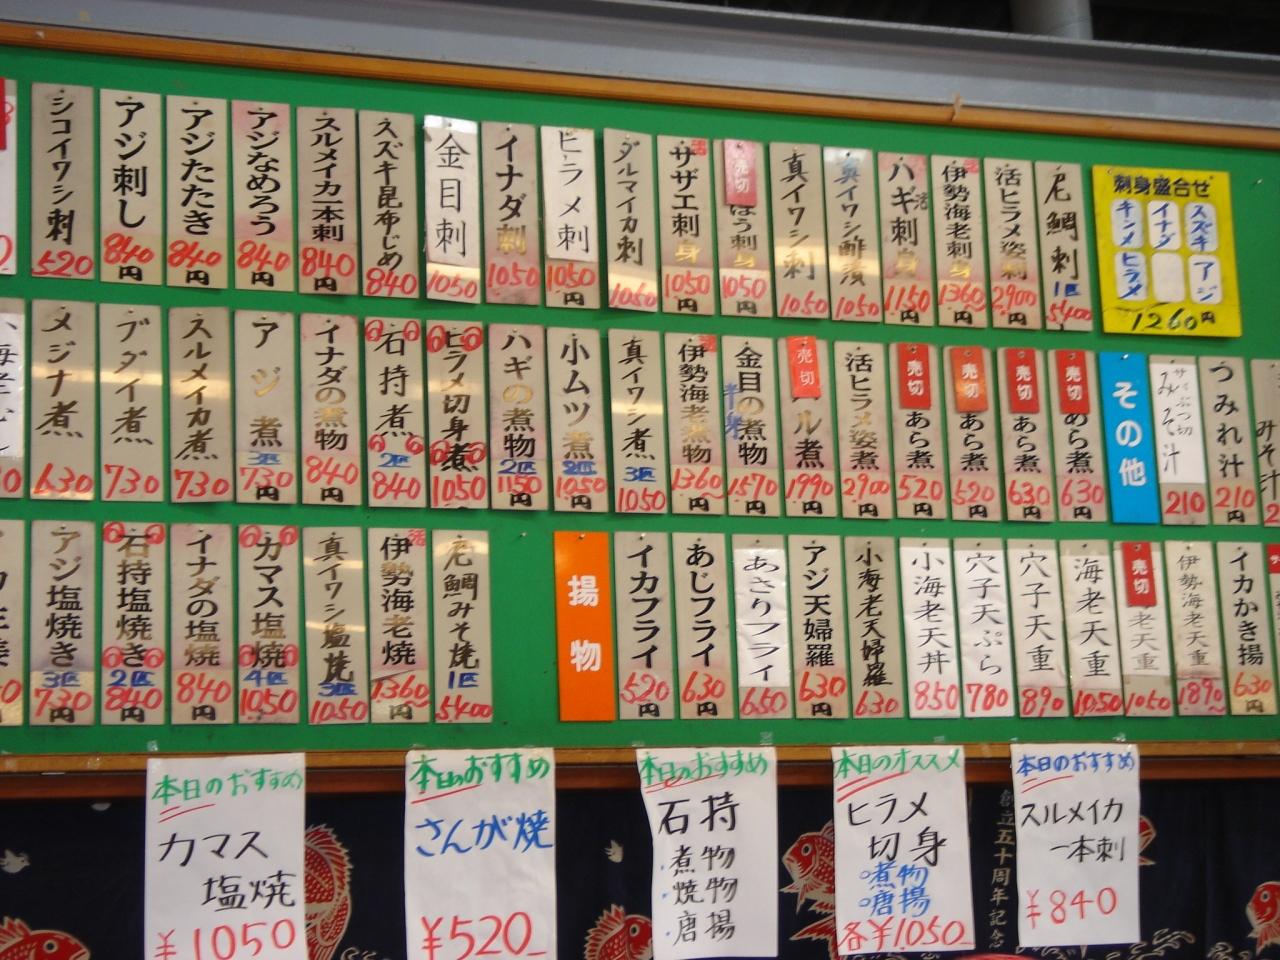 シコイワシ刺 520
アジ刺し 840円
アジたたき 840円
アジなめろう 840円
スルメイカ一本刺 840円
スズキ昆布じめ 840
金目刺 1050
イナダ刺 1050
ヒラメ刺 1050円
ダルマイカ刺 1050
サザエ刺身 1050円
売切 ぼう刺身 1050円
真イワシ刺 1050
真イワシ酢漬 1050
活ハギ刺身 1150円
伊勢海老刺身 1360円
活ヒラメ姿刺 2900円
尾鯛刺 1匹 5400
刺身盛合せ
スズキ イナダ キンメ
アジ ヒラメ
1260円
メジナ煮 630
ブダイ煮 730
スルメイカ煮 730
アジ煮 3匹 730円
イナダの煮物 840円
石持煮 2匹 840
ヒラメ切身煮 1050
ハギの煮物 2匹 1150円
小ムツ煮 2匹 1050
真イワシ煮 3匹 1050
伊勢海老煮物 1360円
金目の煮物 半身 1570円
売切 ル煮 1990円
活ヒラメ姿煮 2900円
売切 あら煮 520円
売切 あら煮 520円
売切 あら煮 630円
売切 あら煮 630円
その他
みそ汁 210
つみれ汁 210円
みそ汁
アジ塩焼き 3匹 730円
石持塩焼き 2匹 840円
イナダの塩焼 840円
カマス塩焼 4匹 1050円
真イワシ塩焼 3匹 1050
伊勢海老焼 1360円
尾鯛みそ焼 1匹 5400
揚物
イカフライ 520円
あじフライ 630円
あさりフライ 650
アジ天婦羅 630円
小海老天婦羅 630
小海老天丼 850
穴子天ぷら 780
穴子天重 890
海老天重 1050
売切 老天重 1050
伊勢海老天重 1890円
イカかき揚 630円
本日のおすすめ
カマス
塩焼
¥1050
本日のおすすめ
さんが焼
¥520
本日のおすすめ
石持
・煮物
・焼物
・唐揚
本日のオススメ
ヒラメ
切身
○煮物
○唐揚
各¥1050
本日のおすすめ
スルメイカ
一本刺
¥840
創立五十周年記念